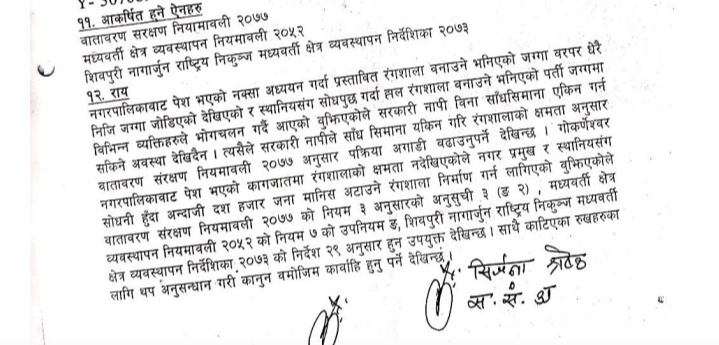 ११. आकर्षित हुने ऐनहरु
वातावरण सरक्षण नियामावली २०७७
मध्यवर्ती क्षेत्र व्यवस्थापन नियमावली २०५२
शिवपुरी नागार्जुन राष्ट्रिय निकुञ्ज मध्यवर्ती क्षेत्र व्यवस्थापन निर्देशिका २०७३
१२. राय
नगरपालिकाबाट पेश भएको नक्सा अध्ययन गर्दा प्रस्तावित रंगशाला बनाउने भनिएको जग्गा वरपर धेरै
निजि जग्गा जोडिएको देखिएको र स्थानियसंग सोधपुछ गर्दा हाल रंगशाला बनाउने भनिएको पर्ती जग्गामा
विभिन्न व्यक्तिहरुले भोगचलन गर्दै आएको बुझिएकोले सरकारी नापी बिना साँधसिमाना एकिन गर्न
सकिने अवस्था देखिदैन । त्यसैले सरकारी नापीले साँध सिमाना यकिन गरि रंगशालाको क्षमता अनुसार
वातावरण संरक्षण नियमावली २०७७ अनुसार पक्रिया अगाडी बढाउनुपर्ने देखिन्छ । गोकर्णेश्वर
नगरपालिकाबाट पेश भएको कागजातमा रंगशालाको क्षमता नदेखिएकोले नगर प्रमुख र स्थानियसंग
सोधनी हुँदा अन्दाजी दश हजार जना मानिस अटाउने रंगशाला निर्माण गर्न लागिएको बुझिएकोले
वातावरण संरक्षण नियमावली २०७७ को नियम ३ अनुसारको अनुसुची ३ (ङ २) , मध्यवर्ती क्षेत्र
व्यवस्थापन नियमावली २०५२ को नियम ७ को उपनियम ङ, शिवपुरी नागार्जुन राष्ट्रिय निकुञ्ज मध्यवर्ती
क्षेत्र व्यवस्थापन निर्देशिका २०७३ को निर्देश २९ अनुसार हुन उपयुक्त देखिन्छ । साथै काटिएका रुखहरुका
लागि थप अनुसन्धान गरी कानुन बमोजिम कार्वाहि हुनु पर्ने देखिन्छ ।
सिर्जना श्रेष्ठ
स. सं. अ